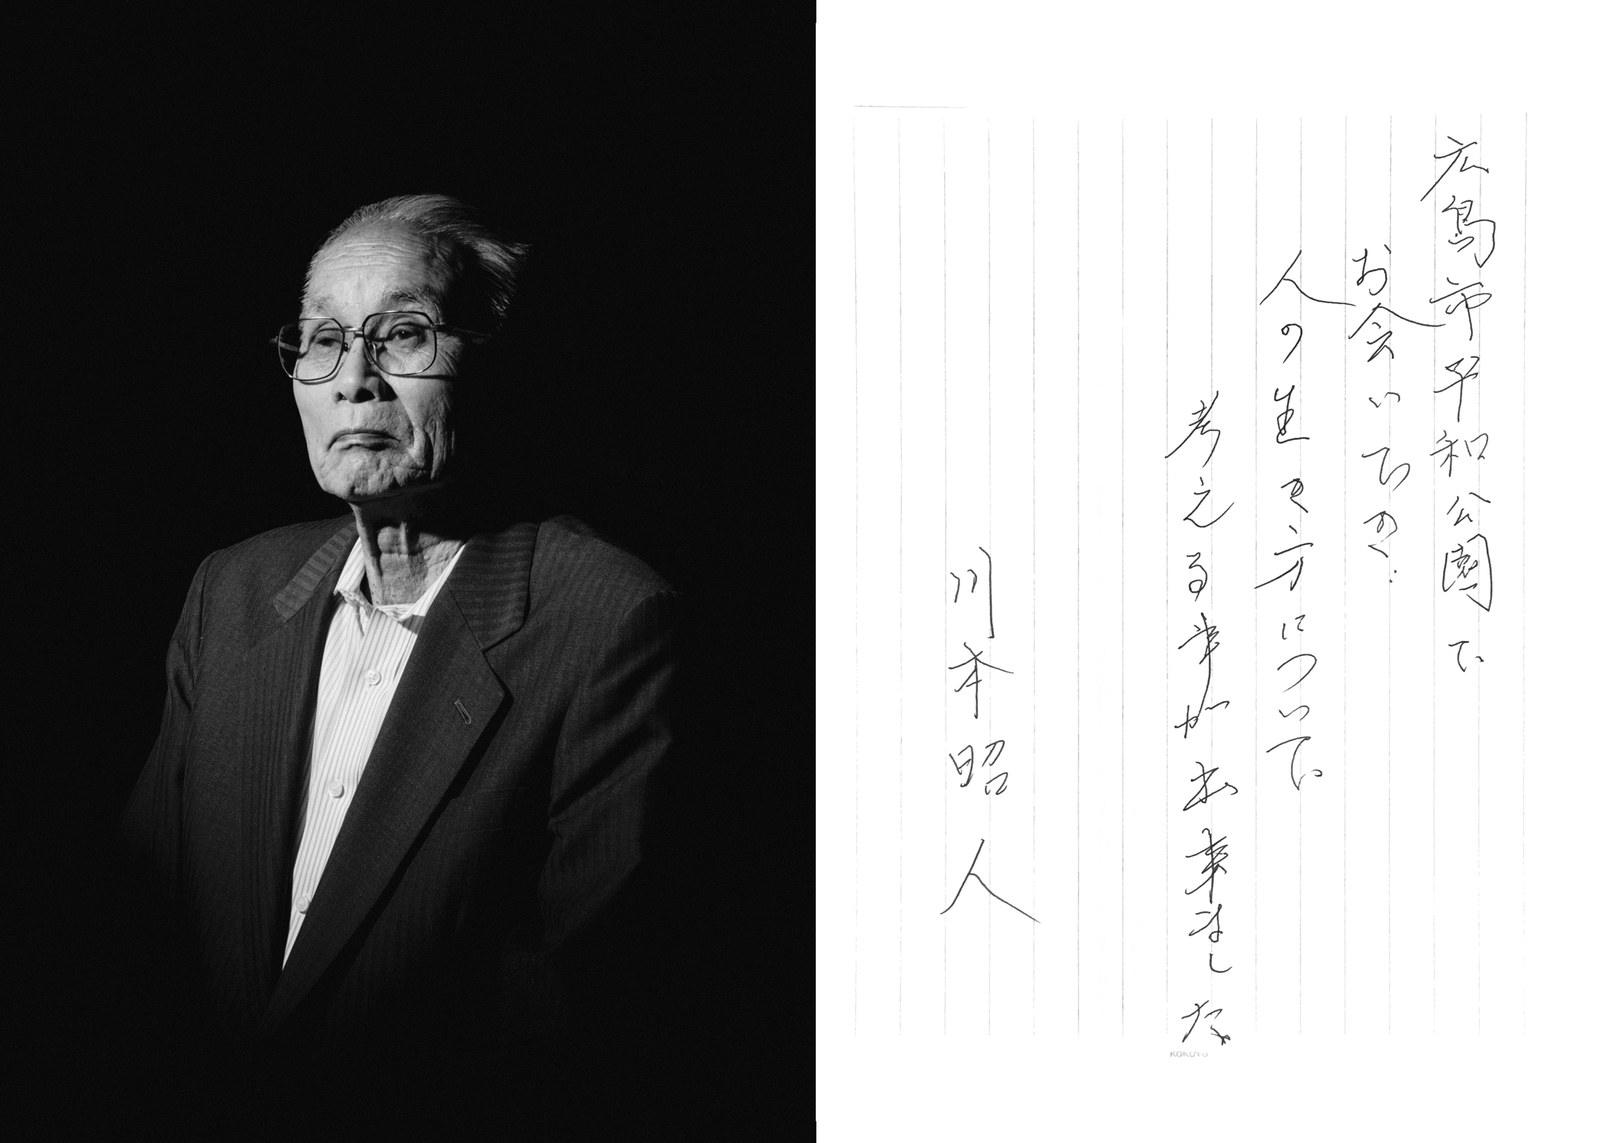 広島市平和公園で
お会いでき
人の生き方について
考える事が出来ました
川本昭人
KOKUYO